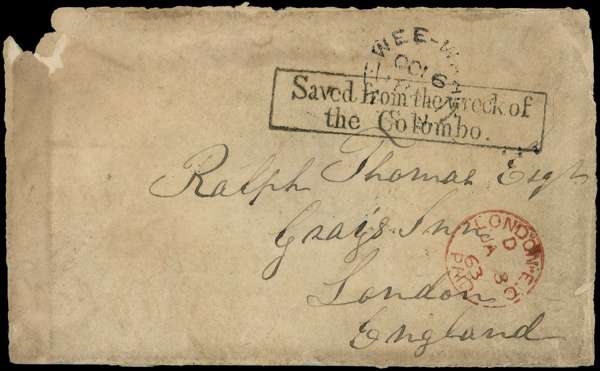 WEE-WAA
OC 16
Saved from the wreck of
the Colombo.
Ralph Thomas Esqr
Gray's Inn
London
England
LONDON-E.C
D
JA 30
63
PAID